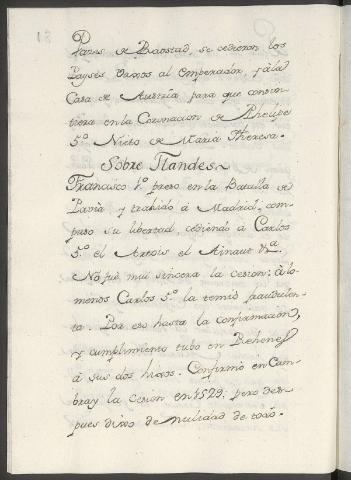 Pazes de Raostad, se cedieron los
Payses Vajos al emperador, y à la
Casa de Austria para que consin-
tiera en la Coronacion de Phelipe
5º Nieto de Maria Theresa.
Sobre Flandes
Francisco 1º preso en la Batalla de
Pavia y trahido á Madrid, com-
puso su libertad, cediendo à Carlos
5º el Artois el Ainaut &ª
No fuè mui sincera la cesion: à lo
menos Carlos 5º la temiò fraudulen-
ta. Por eso hasta la confirmacion,
y cumplimiento tubo en Rehenes
à sus dos hixos. Confirmò en Cam-
bray la cesion en 1529. pero des-
pues dixo de nulidad de todo.